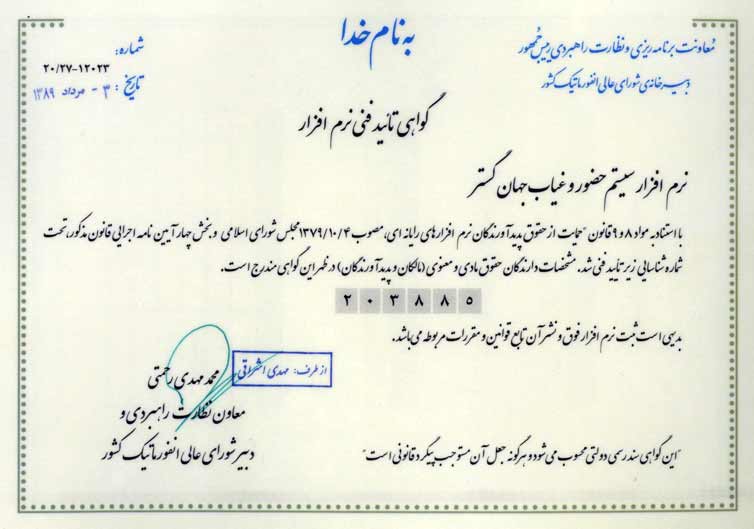 به نام خدا
معاونت برنامه ریزی و نظارت راهبردی رییس جمهور
دبیرخانه‌ی شورای عالی انفورماتیک کشور
شماره:
۲۰/۲۷-۱۲۰۲۳
تاریخ : ۳ - مرداد ۱۳۸۹
گواهی تائید فنی نرم افزار
نرم افزار سیستم حضور و غیاب جهان گستر
با استناد به مواد ۸ و ۹ قانون "حمایت از حقوق پدیدآورندگان نرم افزارهای رایانه ای، مصوب ۱۳۷۹/۱۰/۴ مجلس شورای اسلامی و بخش چهار آیین نامه اجرایی قانون مذکور، تحت
شماره شناسایی زیر تایید فنی شد. مشخصات دارندگان حقوق مادی و معنوی (مالکان و پدیدآورندگان) در ظهر این گواهی مندرج است.
۲۰۳۸۸۵
بدیهی است ثبت نرم افزار فوق و نشر آن تابع قوانین و مقررات مربوطه می باشد.
از طرف: مهدی اشراقی
محمد مهدی رحمتی
معاون نظارت راهبردی و
دبیر شورای عالی انفورماتیک کشور
"این گواهی سند رسمی دولتی محسوب می شود و هرگونه جعل آن مستوجب پیگرد قانونی است"